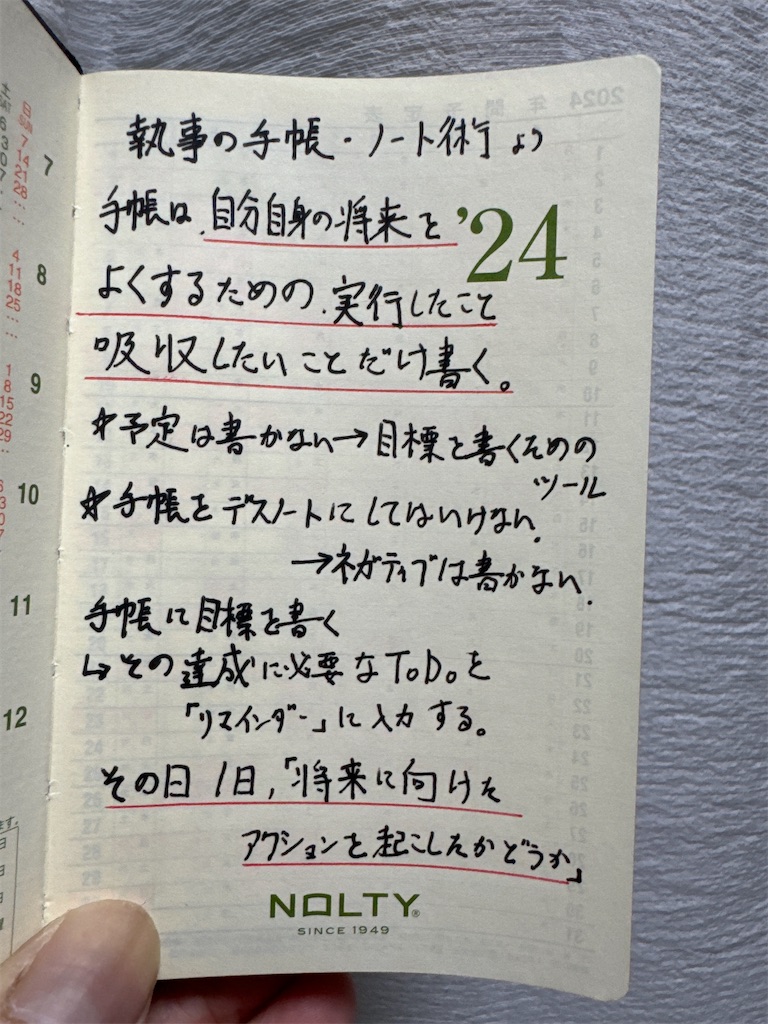 執事の手帳・ノート術より
手帳は、自分自身の将来を
'24
よくするための、実行したこと
吸収したいことだけ書く。
☆予定は書かない→目標を書くための
ツール
☆手帳をデスノートにしてはいけない。
→ネガティブは書かない。
手帳に目標を書く
↳その達成に必要なToDoを
「リマインダー」に入力する。
その日1日,「将来に向けた
アクションを起こしたかどうか」
NOLTY®
SINCE 1949
2024 年間予定表
土
日
7
14
21
28
7
4
11
18
25
8
1
8
15
22
29
9
10
11
12